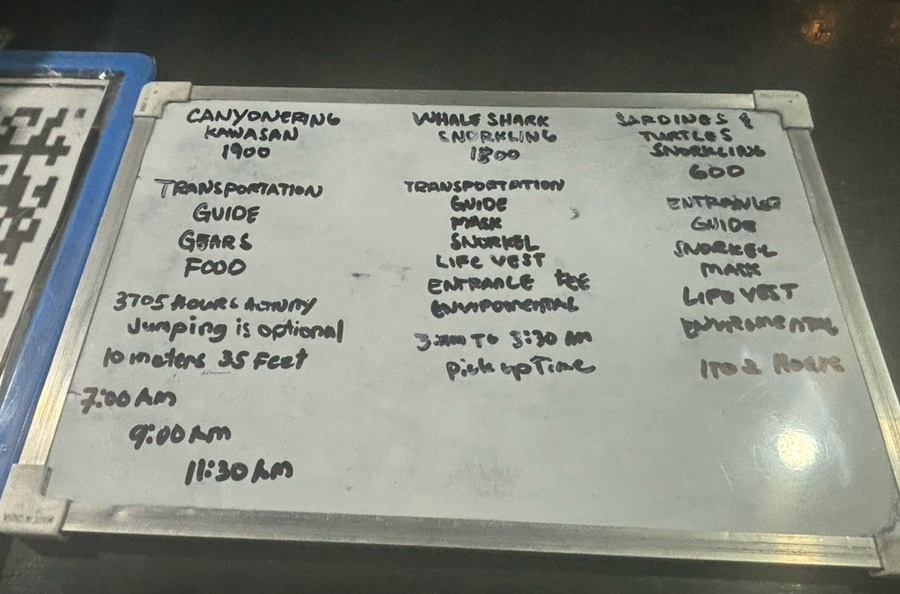 CANYONERING
KAWASAN
1900
TRANSPORTATION
GUIDE
GEARS
FOOD
3TO5 HOURS ACTIVITY
Jumping is optional
10 meters 35 Feet
7:00 AM
9:00 AM
11:30 AM
WHALE SHARK
SNORKLING
1800
TRANSPORTATION
GUIDE
MASK
SNORKEL
LIFE VEST
ENTRANCE FEE
TO 3:30 AM
pick up Time
SARDINES &
TURTLES
SNORKLING
600
ENTRANCE
GUIDE
SNORKEL
MASK
LIFE VEST
1TO 2 HOURS